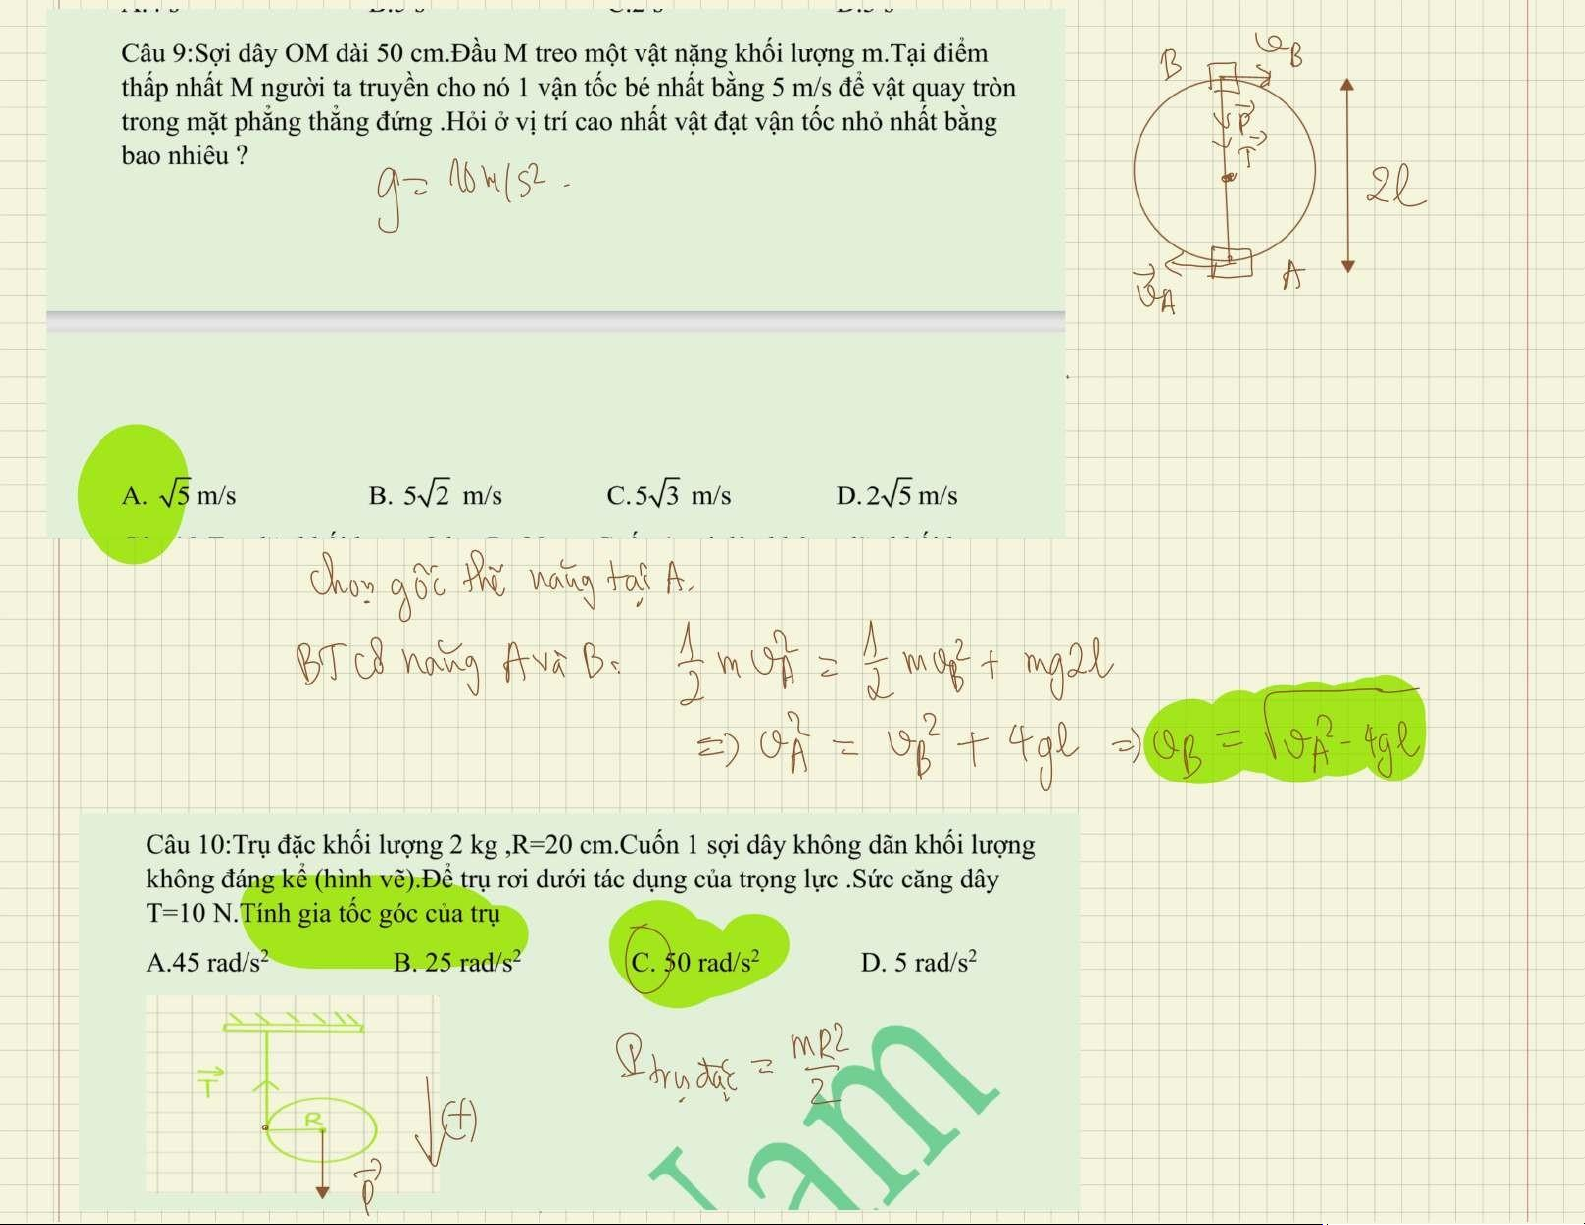 Câu 9:Sợi dây OM dài 50 cm.Đầu M treo một vật nặng khối lượng m.Tại điểm
thấp nhất M người ta truyền cho nó 1 vận tốc bé nhất bằng 5 m/s để vật quay tròn
trong mặt phẳng thẳng đứng .Hỏi ở vị trí cao nhất vật đạt vận tốc nhỏ nhất bằng
bao nhiêu ?
g = 10 m/s².
B v_B
P⃗
T⃗
2l
v⃗_A A
A. √5 m/s B. 5√2 m/s C.5√3 m/s D.2√5 m/s
chọn gốc thế năng tại A.
BT Cơ năng A và B: 1/2 mv_A² = 1/2 mv_B² + mg2l
=> v_A² = v_B² + 4gl => v_B = √(v_A² - 4gl)
Câu 10:Trụ đặc khối lượng 2 kg ,R=20 cm.Cuốn 1 sợi dây không dãn khối lượng
không đáng kể (hình vẽ).Để trụ rơi dưới tác dụng của trọng lực .Sức căng dây
T=10 N.Tính gia tốc góc của trụ
A.45 rad/s² B. 25 rad/s² C. 50 rad/s² D. 5 rad/s²
I trụ đặc = mR²/2
T⃗
R
(+)
P⃗
am